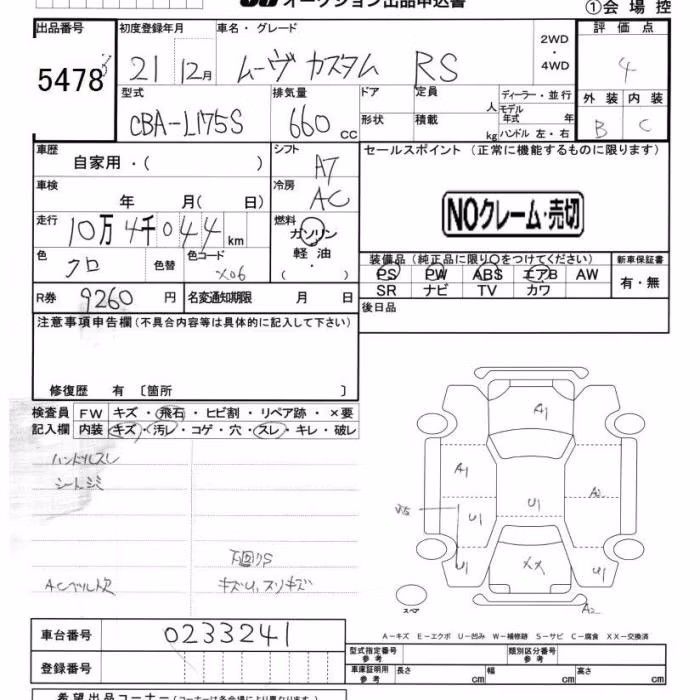 オークション出品申込書
①会場控
出品番号 初度登録年月 車名・グレード 評価点
5478 21 12月 ムーヴ カスタム RS 2WD・4WD 4
型式 排気量 ドア 定員 人 ディーラー・並行 外装 内装
CBA-L175S 660cc 形状 積載 kg モデル年式 年 ハンドル 左・右 B C
車歴 自家用・( ) シフト A7 セールスポイント (正常に機能するものに限ります)
車検 年 月( 日) 冷房 AC
走行 10万4千044km 燃料 ガソリン・軽油・( )
NOクレーム・売切
色 クロ 色替 色コード X06
装備品 (純正品に限り〇をつけてください) 新車保証書
PS PW ABS エアB AW 有・無
SR ナビ TV カワ
R券 9260円 名変通知期限 月 日
後日品
注意事項申告欄(不具合内容等は具体的に記入して下さい)
修復歴 有 〔箇所 〕
検査員 FW キズ・飛石・ヒビ割・リペア跡・×要
記入欄 内装 キズ・汚レ・コゲ・穴・スレ・キレ・破レ
ハンドルスレ
シートシミ
下回りS
ACベルト欠 キズU,スリキズ
A1
A1 A2
U1 U1
U1 XX U1
スペア A2
車台番号 0233241
A−キズ E−エクボ U−凹み W−補修跡 S−サビ C−腐食 XX−交換済
型式指定番号 参考 類別区分番号 参考
登録番号 車庫証明用 参考 長さ cm 幅 cm 高さ cm
希望出品コーナー